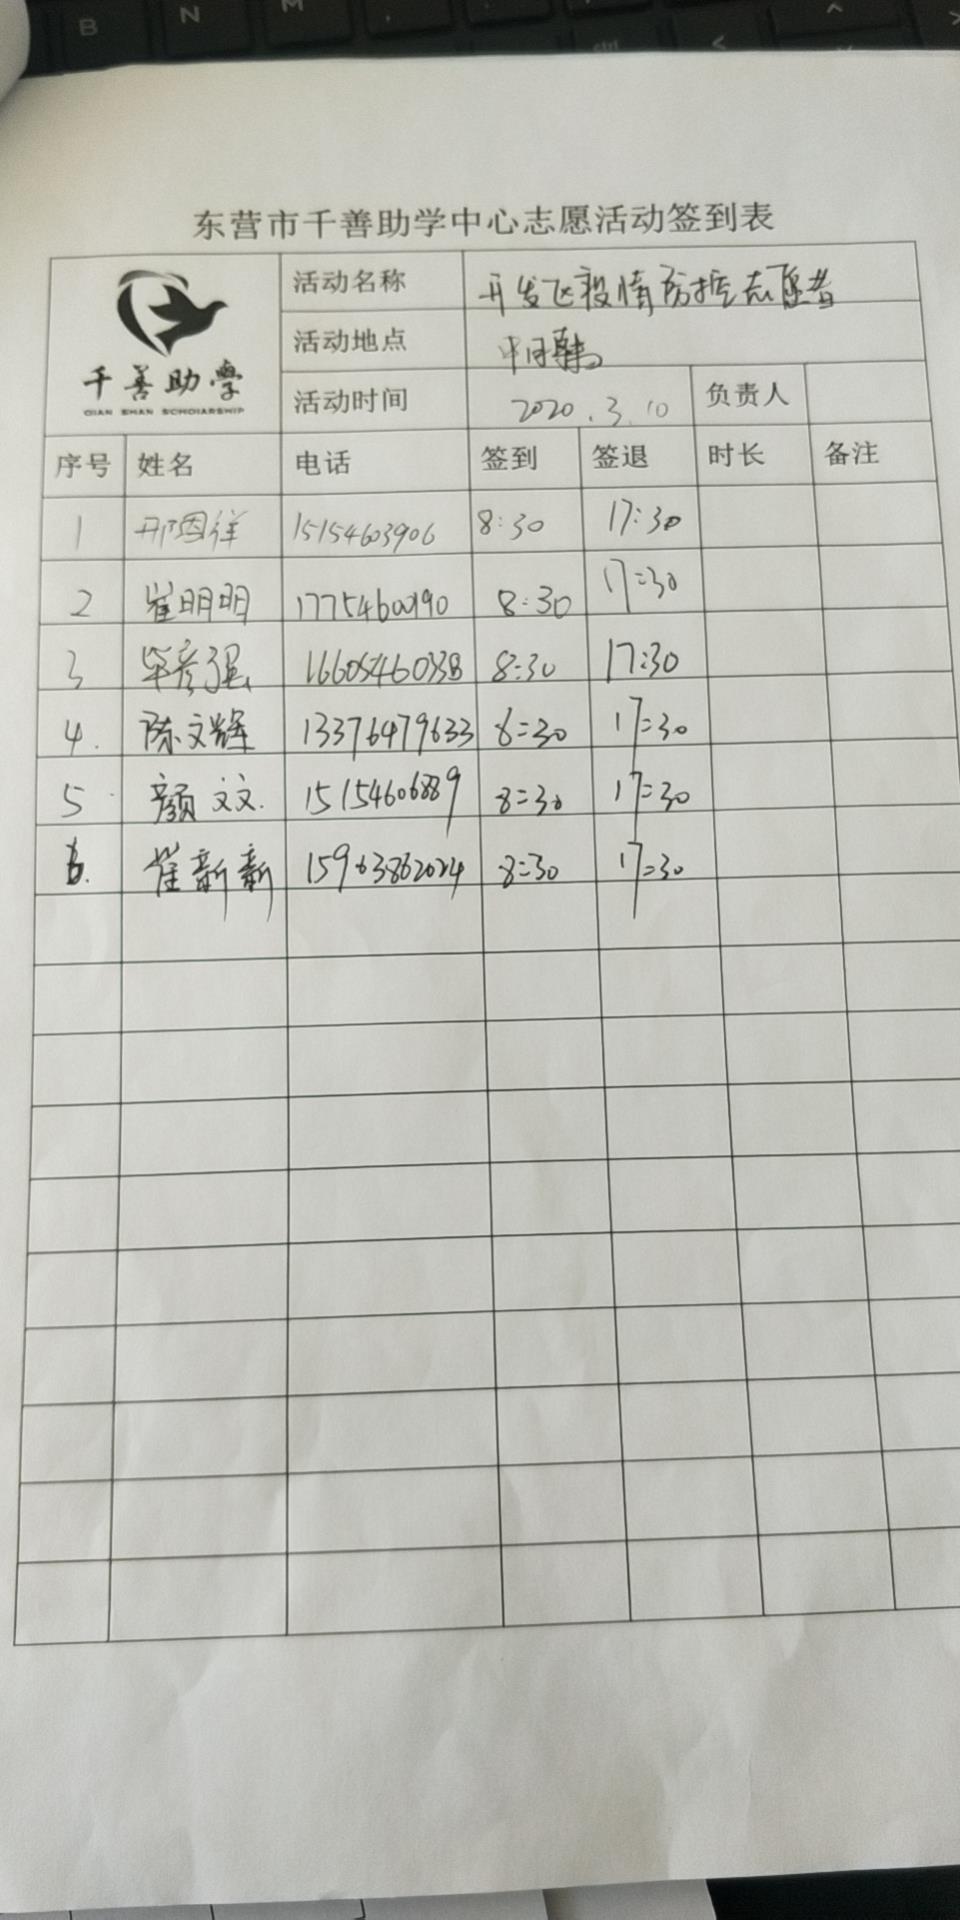 B N M
ctrl
东营市千善助学中心志愿活动签到表
千善助學
QIAN SHAN SCHOLARSHIP
活动名称 开发区疫情防控志愿者
活动地点
活动时间 2020.3.10 负责人
序号 姓名 电话 签到 签退 时长 备注
1 邢恩祥 15154603906 8:30 17:30
2 崔明明 8:30 17:30
3 毕彦强 8:30 17:30
4. 陈文辉 13376479633 8:30 17:30
5 颜文文. 15154606889 8:30 17:30
6. 崔新新 15963862024 8:30 17:30